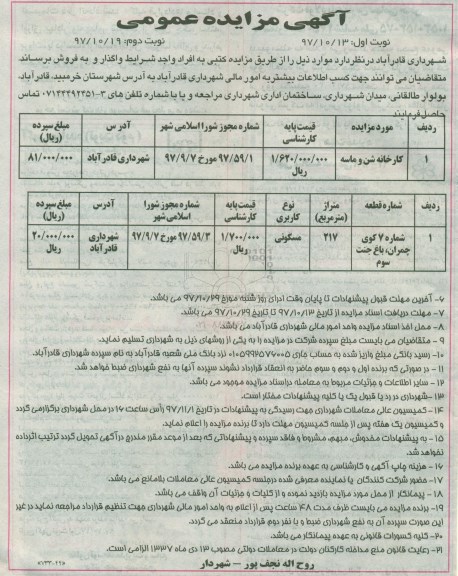 آگهی مزایده عمومی
نوبت اول: ۹۷/۱۰/۱۳ نوبت دوم: ۹۷/۱۰/۱۹
شهرداری قادرآباد در نظر دارد موارد ذیل را از طریق مزایده کتبی به افراد واجد شرایط واگذار و به فروش برساند.
متقاضیان می توانند جهت کسب اطلاعات بیشتر به امور مالی شهرداری قادرآباد به آدرس شهرستان خرمبید، قادرآباد،
بولوار طالقانی، میدان شهرداری، ساختمان اداری شهرداری مراجعه و یا با شماره تلفن های ۳-۰۷۱۴۴۴۹۲۳۵۱ تماس
حاصل فرمایند
ردیف مورد مزایده قیمت پایه کارشناسی شماره مجوز شورا اسلامی شهر آدرس مبلغ سپرده (ریال)
۱ کارخانه شن و ماسه ۱/۶۲۰/۰۰۰/۰۰۰ ریال ۹۷/۵۹/۱ مورخ ۹۷/۹/۷ شهرداری قادرآباد ۸۱/۰۰۰/۰۰۰
ردیف شماره قطعه متراژ (مترمربع) نوع کاربری قیمت پایه کارشناسی شماره مجوز شورا اسلامی شهر آدرس مبلغ سپرده (ریال)
۱ شماره ۷ کوی چمران، باغ جنت سوم ۲۱۷ مسکونی ۱/۷۰۰/۰۰۰ ریال ۹۷/۵۹/۳ مورخ ۹۷/۹/۷ شهرداری قادرآباد ۲۰/۰۰۰/۰۰۰ ریال
۶- آخرین مهلت قبول پیشنهادات تا پایان وقت اداری روز شنبه مورخ ۹۷/۱۰/۲۹ می باشد.
۷- مهلت دریافت اسناد مزایده از تاریخ ۹۷/۱۰/۱۳ تا تاریخ ۹۷/۱۰/۲۹ می باشد.
۸- محل اخذ اسناد مزایده واحد امور مالی شهرداری قادرآباد می باشد.
۹- متقاضیان می بایست مبلغ سپرده شرکت در مزایده را به یکی از روشهای ذیل به شهرداری تسلیم نماید.
۱۰- رسید بانکی مبلغ واریز شده به حساب جاری ۰۱۰۵۹۹۲۵۷۶۰۰۵ نزد بانک ملی شعبه قادرآباد به نام سپرده شهرداری قادرآباد.
۱۱- در صورتی که برنده اول و دوم و سوم حاضر به انعقاد قرارداد نشوند سپرده آنها به نفع شهرداری ضبط خواهد شد.
۱۲- سایر اطلاعات و جزئیات مربوط به معامله در اسناد مزایده موجود می باشد.
۱۳- شهرداری در رد یا قبول یک یا کلیه پیشنهادات مختار است.
۱۴- کمیسیون عالی معاملات شهرداری جهت رسیدگی به پیشنهادات در تاریخ ۹۷/۱۱/۱ رأس ساعت ۱۶ در محل شهرداری برگزار می گردد
و کمیسیون یک هفته پس از جلسه کمیسیون مهلت دارد تا برنده مزایده را اعلام نماید.
۱۵- به پیشنهادات مخدوش، مبهم، مشروط و فاقد سپرده و پیشنهاداتی که بعد از موعد مقرر مندرج در آگهی تحویل گردد ترتیب اثر داده
نخواهد شد.
۱۶- هزینه چاپ آگهی و کارشناسی به عهده برنده مزایده می باشد.
۱۷- حضور شرکت کنندگان یا نماینده معرفی شده در جلسه کمیسیون عالی معاملات بلامانع می باشد.
۱۸- پیمانکار از محل مورد مزایده بازدید نموده و از کلیات و جزئیات آن واقف می باشد.
۱۹- برنده مزایده می بایست ظرف مدت ۴۸ ساعت پس از اعلام به واحد امور مالی شهرداری جهت تنظیم قرارداد مراجعه نماید در غیر
این صورت سپرده آن به نفع شهرداری ضبط و با نفر دوم قرارداد منعقد می گردد.
۲۰- کلیه کسورات قانونی به عهده پیمانکار می باشد.
۲۱- رعایت قانون منع مداخله کارکنان دولت در معاملات دولتی مصوب ۱۳ دی ماه ۱۳۳۷ الزامی است.
روح اله نجف پور – شهردار